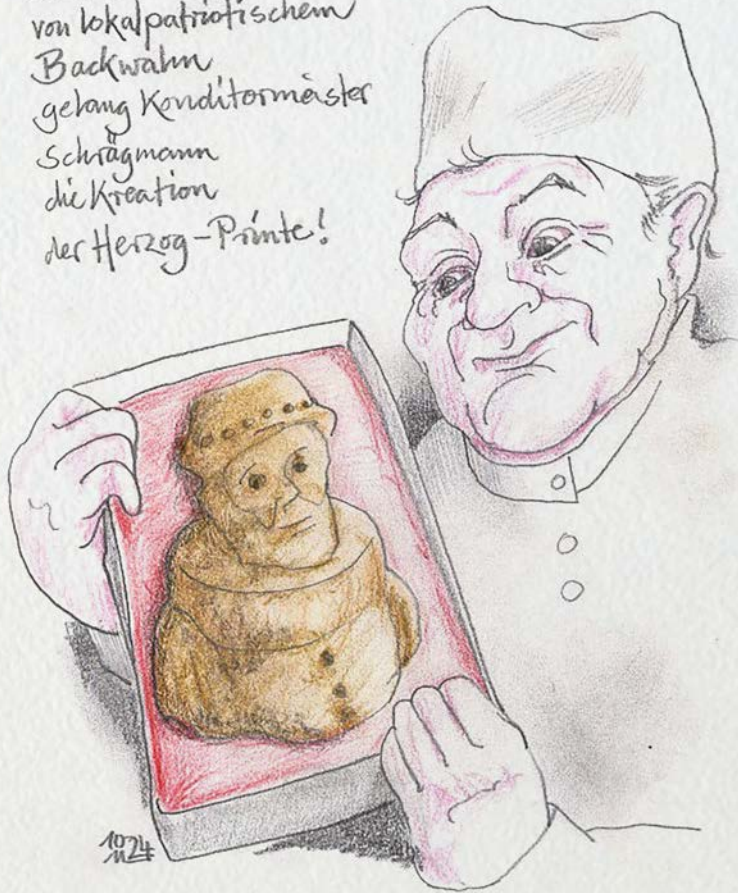 von lokalpatriotischem
Backwahn
gelang Konditormeister
Schrägmann
die Kreation
der Herzog-Printe!